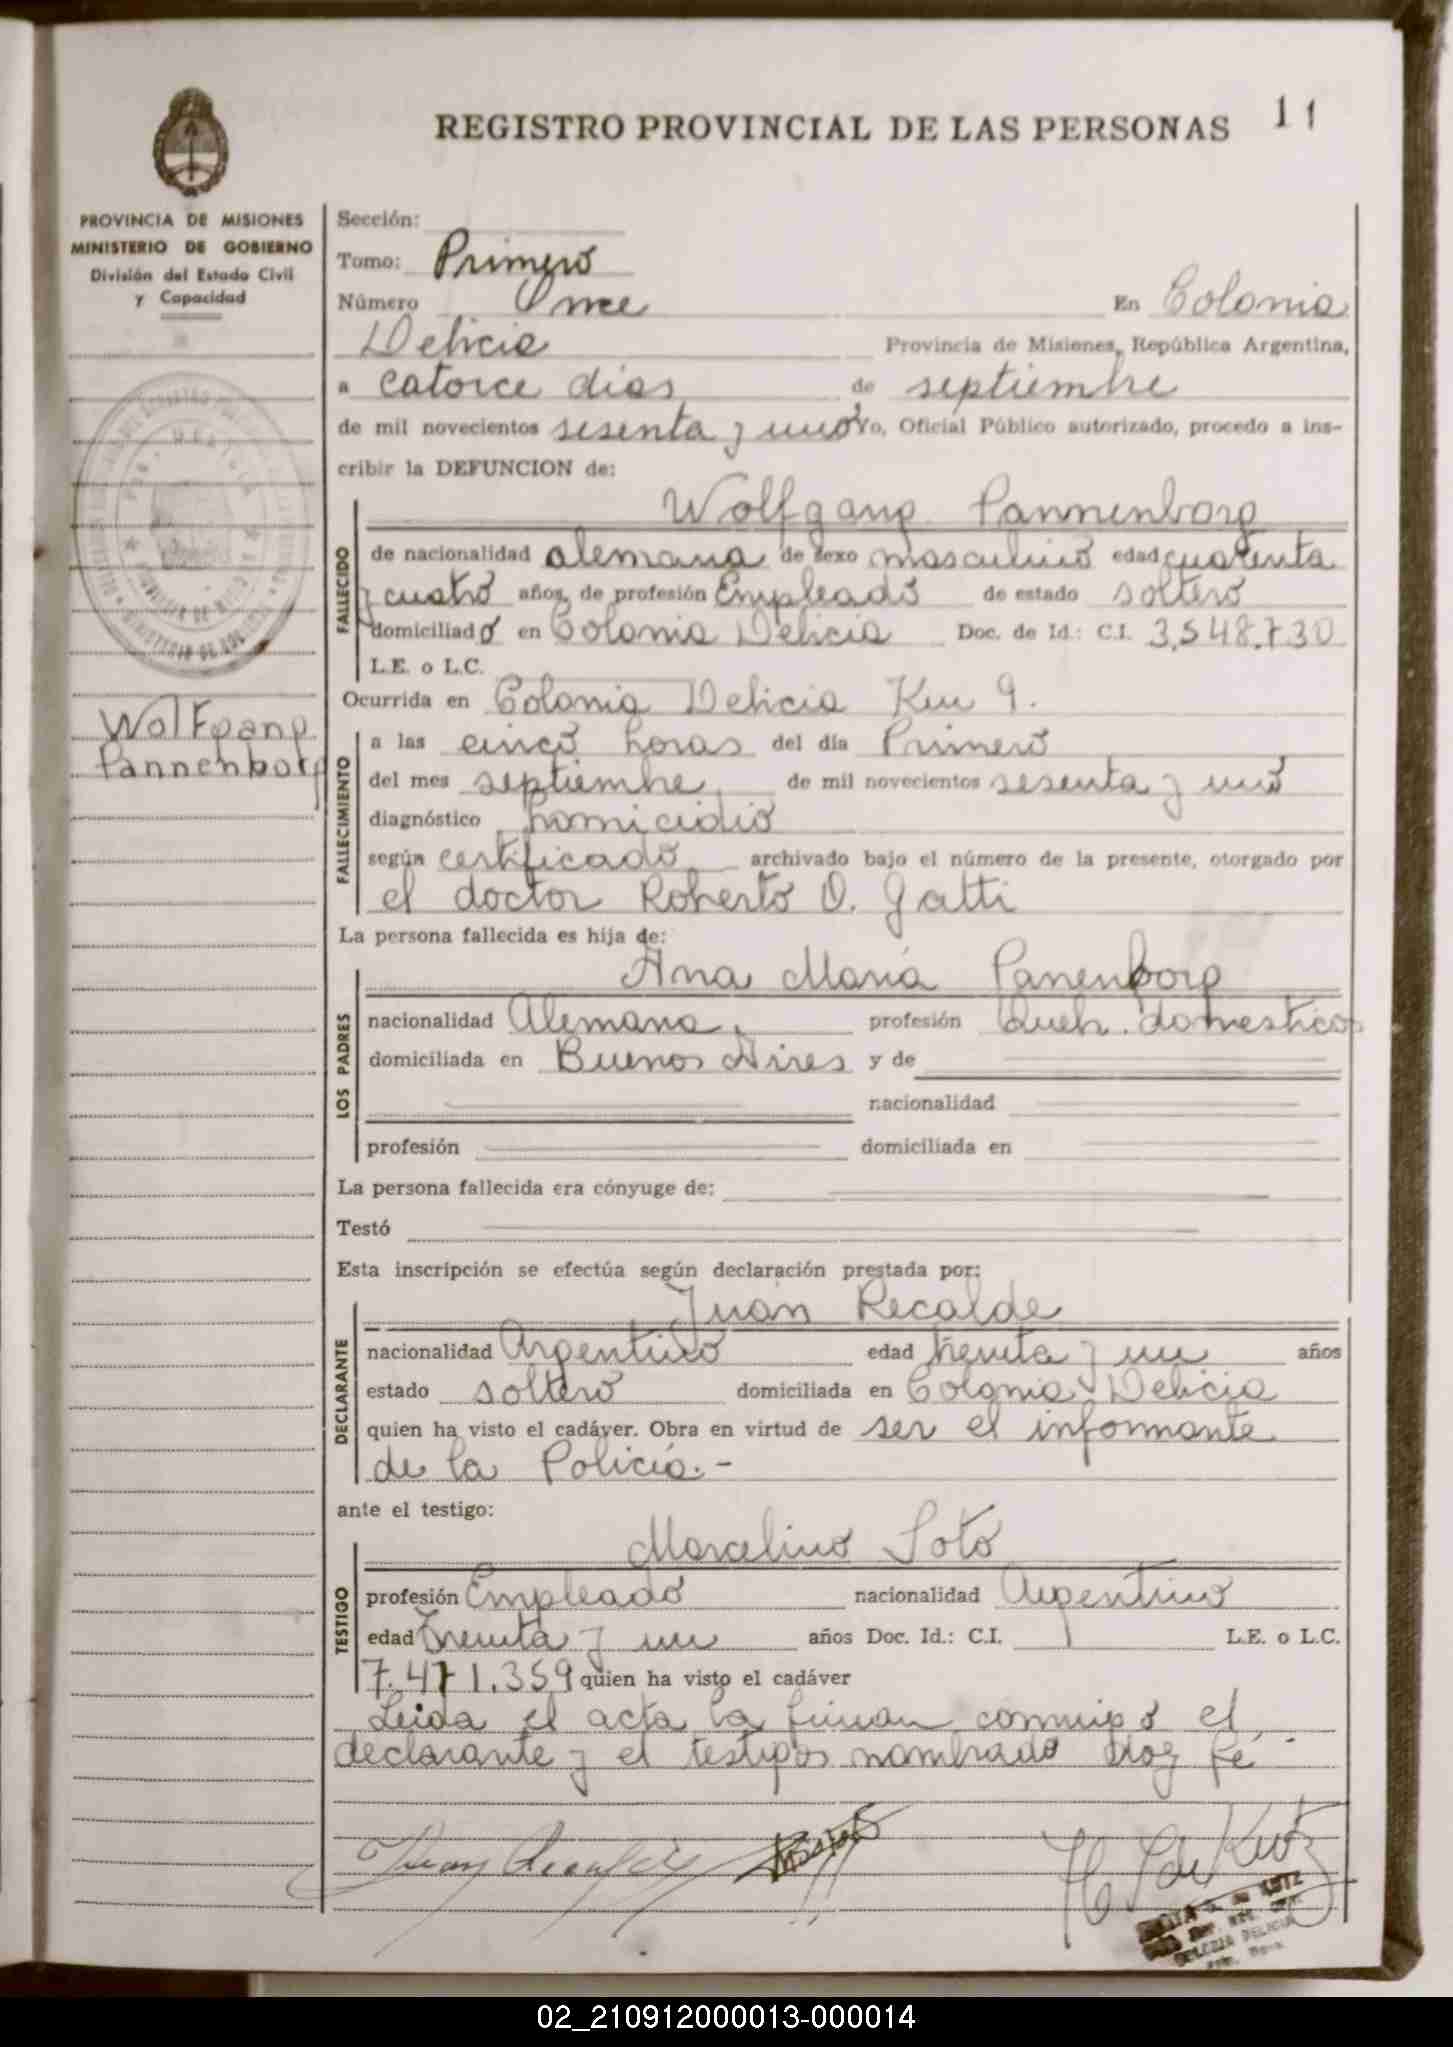 REGISTRO PROVINCIAL DE LAS PERSONAS 11
PROVINCIA DE MISIONES
MINISTERIO DE GOBIERNO
División del Estado Civil
y Capacidad
Wolfgang
Pannenborg
Sección:
Tomo: Primero
Número Once En Colonia
Delicia Provincia de Misiones, República Argentina,
a catorce dias de septiembre
de mil novecientos sesenta y uno Yo, Oficial Público autorizado, procedo a ins-
cribir la DEFUNCION de:
Wolfgang Pannenborg
FALLECIDO
de nacionalidad alemana de sexo masculino edad cuarenta
y cuatro años, de profesión Empleado de estado soltero
domiciliado en Colonia Delicia Doc. de Id.: C.I. 3.548.730
L.E. o L.C.
Ocurrida en Colonia Delicia Km 9.
FALLECIMIENTO
a las cinco horas del día Primero
del mes septiembre de mil novecientos sesenta y uno
diagnóstico homicidio
según certificado archivado bajo el número de la presente, otorgado por
el doctor Roberto O. Gatti
La persona fallecida es hija de:
Ana María Panenborg
LOS PADRES
nacionalidad Alemana. profesión Queh. domesticos
domiciliada en Buenos Aires y de
nacionalidad
profesión domiciliada en
La persona fallecida era cónyuge de:
Testó
Esta inscripción se efectúa según declaración prestada por:
Juan Recalde
DECLARANTE
nacionalidad Argentino edad treinta y un años
estado soltero domiciliada en Colonia Delicia
quien ha visto el cadáver. Obra en virtud de ser el informante
de la Policía.-
ante el testigo:
Marcelino Soto
TESTIGO
profesión Empleado nacionalidad Argentino
edad Treinta y un años Doc. Id.: C.I. L.E. o L.C.
7.471.359 quien ha visto el cadáver
Leida el acta la firman conmigo el
declarante y el testigos nombrado doy fé
COLONIA DELICIA
02_210912000013-000014